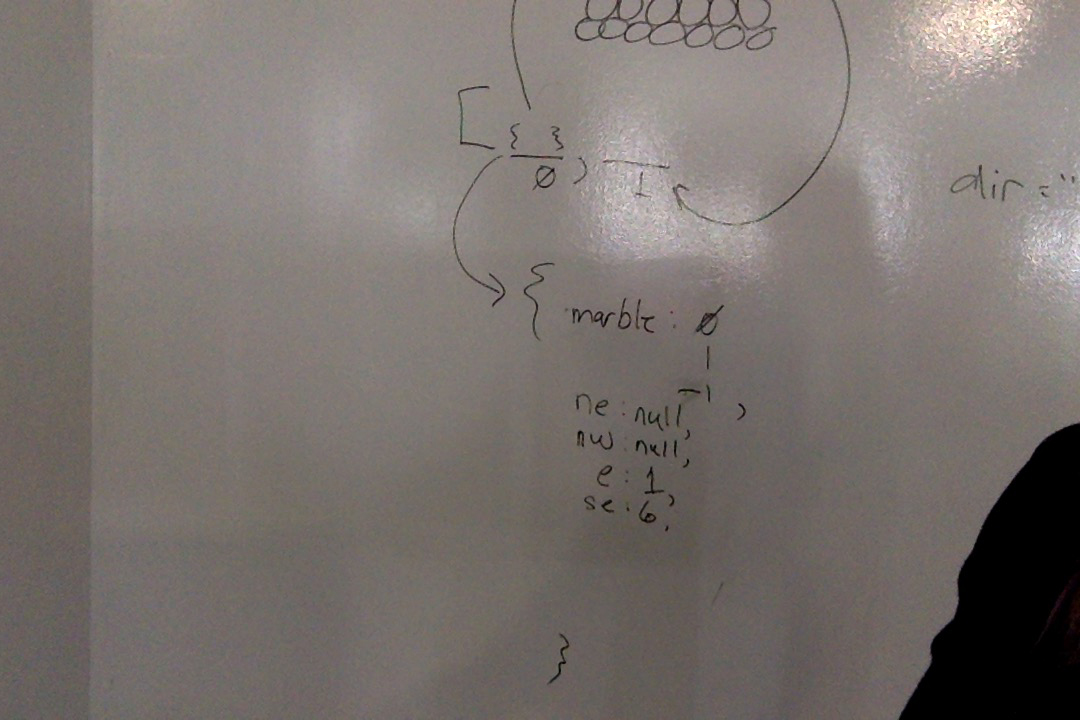 [ { }
Ø , 1
dir = "
{ marble: Ø
1
-1 ,
ne: null,
nw: null,
e: 1,
se: 6,
}